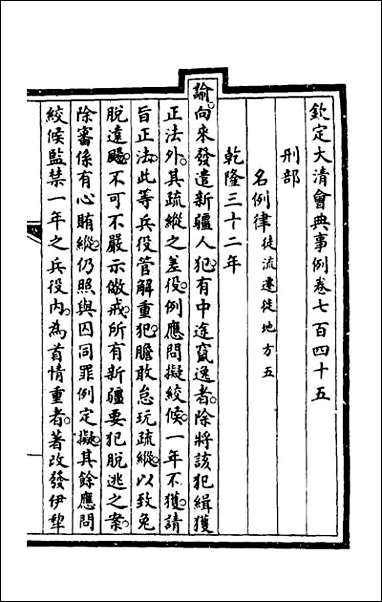 欽定大清會典事例卷七百四十五
刑部
名例律徒流遷徙地方五
乾隆三十二年
諭向來發遣新疆人犯有中途竄逸者除將該犯緝獲
正法外其疏縱之差役例應問擬絞候一年不獲請
旨正法此等兵役管解重犯膽敢怠玩疏縱以致兔
脫遠颺不可不嚴示儆戒所有新疆要犯脫逃之案
除審係有心賄縱仍照與囚同罪例定擬其餘應問
絞候監禁一年之兵役內為首情重者著改發伊犂